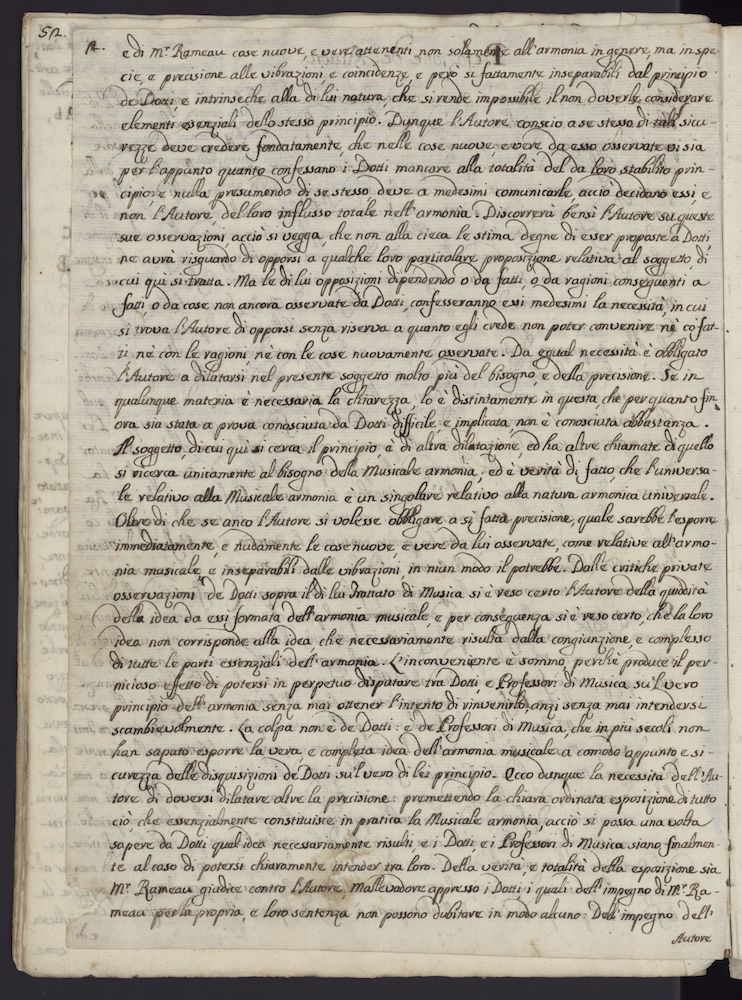 52.
12.
e di M.r Rameau cose nuove, e vere attenenti non solamente all'armonia in genere, ma in spe-
cie, e precisione alle vibrazioni, e coincidenze, e però si fattamente inseparabili dal principio
de Dotti, e intrinseche alla di lui natura, che si rende impossibile il non doverle considerare
elementi essenziali dello stesso principio. Dunque l'Autore conscio a se stesso di tali sicu-
rezze deve credere fondatamente, che nelle cose nuove, e vere da esso osservate vi sia
per l'appunto quanto confessano i Dotti mancare alla totalità del da loro stabilito prin-
cipio, e nulla presumendo di se stesso deve a medesimi comunicarle, acciò decidano essi, e
non l'Autore, del loro influsso totale nell'armonia. Discorrerà bensì l'Autore su queste
sue osservazioni, acciò si vegga, che non alla cieca le stima degne di esser proposte a Dotti,
ne avrà risguardo di opporsi a qualche loro particolare proposizione relativa al soggetto, di
cui qui si tratta. Ma le di lui opposizioni dipendendo o da fatti, o da ragioni conseguenti a
fatti, o da cose non ancora osservate da Dotti, confesseranno essi medesimi la necessità, in cui
si trova l'Autore di opporsi senza riserva a quanto egli crede non poter convenire nè co' fat-
ti nè con le ragioni, nè con le cose nuovamente osservate. Da egual necessità è obbligato
l'Autore a dilatarsi nel presente soggetto molto più del bisogno, e della precisione. Se in
qualunque materia è necessaria la chiarezza, lo è distintamente in questa, che per quanto fin'
ora sia stata a prova conosciuta da Dotti difficile, e implicata, non è conosciuta abbastanza.
Il soggetto di cui qui si cerca il principio, è di altra dilatazione, ed ha altre chiamate di quello
si ricerca unicamente al bisogno della Musicale armonia; ed è verità di fatto, che l'universa-
le relativo alla Musicale armonia è un singolare relativo alla natura armonica universale.
Oltre di che se anco l'Autore si volesse obbligare a sì fatta precisione, quale sarebbe l'esporre
immediatamente, e nudamente le cose nuove, e vere da lui osservate, come relative all'armo-
nia musicale, e inseparabili dalle vibrazioni, in niun modo il potrebbe. Dalle critiche private
osservazioni de Dotti sopra il di lui Trattato di Musica si è reso certo l'Autore della quiddità
della idea da essi formata dell'armonia musicale, e per conseguenza si è reso certo, che la loro
idea non corrisponde alla idea che necessariamente risulta dalla congiunzione, e complesso
di tutte le parti essenziali dell'armonia. L'inconveniente è sommo, perchè produce il per-
nicioso effetto di potersi in perpetuo disputare tra Dotti, e Professori di Musica su'l vero
principio dell'armonia senza mai ottener l'intento di rinvenirlo, anzi senza mai intendersi
scambievolmente. La colpa non è de Dotti: è de Professori di Musica, che in più secoli non
han saputo esporre la vera, e completa idea dell'armonia musicale a comodo appunto e si-
curezza delle disquisizioni de Dotti su'l vero di lei principio. Ecco dunque la necessità dell'Au-
tore di doversi dilatare oltre la precisione: premettendo la chiara ordinata esposizione di tutto
ciò che essenzialmente constituisce in pratica la Musicale armonia, acciò si possa una volta
sapere da Dotti qual idea necessariamente risulti, e i Dotti, e i Professori di Musica siano finalmen-
te al caso di potersi chiaramente intender tra loro. Della verità, e totalità della esposizione sia
M.r Rameau giudice contro l'Autore, mallevadore appresso i Dotti: i quali dell'impegno di M.r Ra-
meau per la propria, e loro sentenza non possono dubitare in modo alcuno: Dell'impegno dell'
Autore